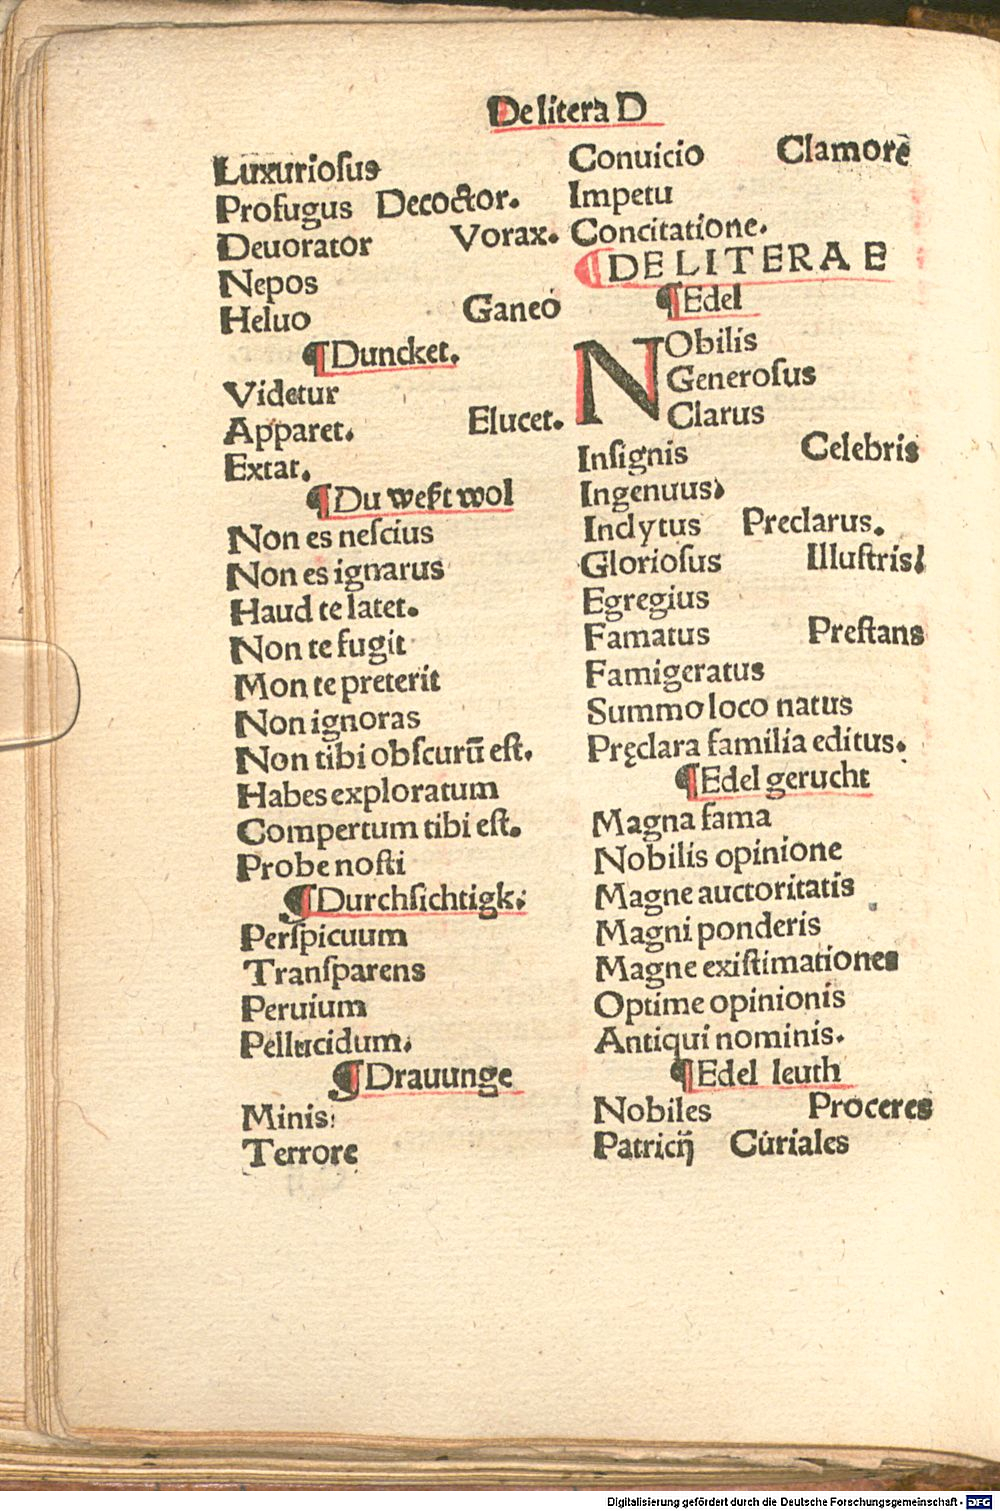 De litera D
Luxuriosus
Profugus Decoctor.
Deuorator Vorax.
Nepos
Heluo Ganeo
¶ Duncket.
Videtur
Apparet. Elucet.
Extat.
¶ Du weſt wol
Non es neſcius
Non es ignarus
Haud te latet.
Non te fugit
Mon te preterit
Non ignoras
Non tibi obſcurū eſt.
Habes exploratum
Compertum tibi eſt.
Probe noſti
¶ Durchſichtigk.
Perſpicuum
Tranſparens
Peruium
Pellucidum.
¶ Drauunge
Minis:
Terrore
Conuicio Clamorē
Impetu
Concitatione.
¶ DE LITERA E
¶ Edel
NObilis
Generoſus
Clarus
Inſignis Celebris
Ingenuus
Inclytus Preclarus.
Glorioſus Illuſtris
Egregius
Famatus Preſtans
Famigeratus
Summo loco natus
Pręclara familia editus.
¶ Edel gerucht
Magna fama
Nobilis opinione
Magne auctoritatis
Magni ponderis
Magne exiſtimationes
Optime opinionis
Antiqui nominis.
¶ Edel leuth
Nobiles Proceres
Patricij Curiales
Digitalisierung gefördert durch die Deutsche Forschungsgemeinschaft - DFG